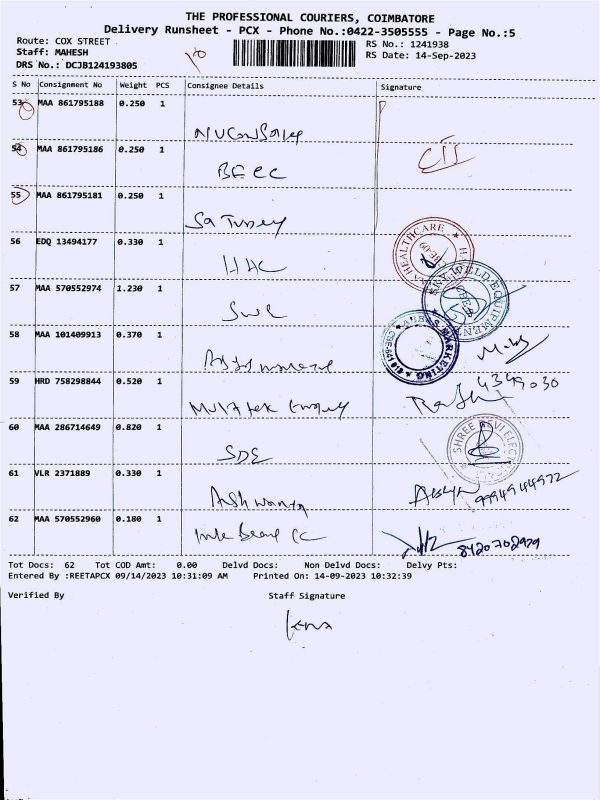 THE PROFESSIONAL COURIERS, COIMBATORE
Delivery Runsheet - PCX - Phone No.:0422-3505555 - Page No.:5
Route: COX STREET RS No.: 1241938
Staff: MAHESH RS Date: 14-Sep-2023
DRS No.: DCJB124193805
S No Consignment No Weight PCS Consignee Details Signature
53 MAA 861795188 0.250 1
54 MAA 861795186 0.250 1
BECC
55 MAA 861795181 0.250 1
56 EDQ 13494177 0.330 1
HHC
HEALTHCARE
57 MAA 570552974 1.230 1
WELD EQUIPMENT
58 MAA 101409913 0.370 1
MARKETING
59 HRD 758298844 0.520 1
4349030
60 MAA 286714649 0.820 1
SDE
SHREE DEVI
61 VLR 2371889 0.330 1
Ashwanth
9994944922
62 MAA 570552960 0.180 1
8420702929
Tot Docs: 62 Tot COD Amt: 0.00 Delvd Docs: Non Delvd Docs: Delvy Pts:
Entered By :REETAPCX 09/14/2023 10:31:09 AM Printed On: 14-09-2023 10:32:39
Verified By Staff Signature